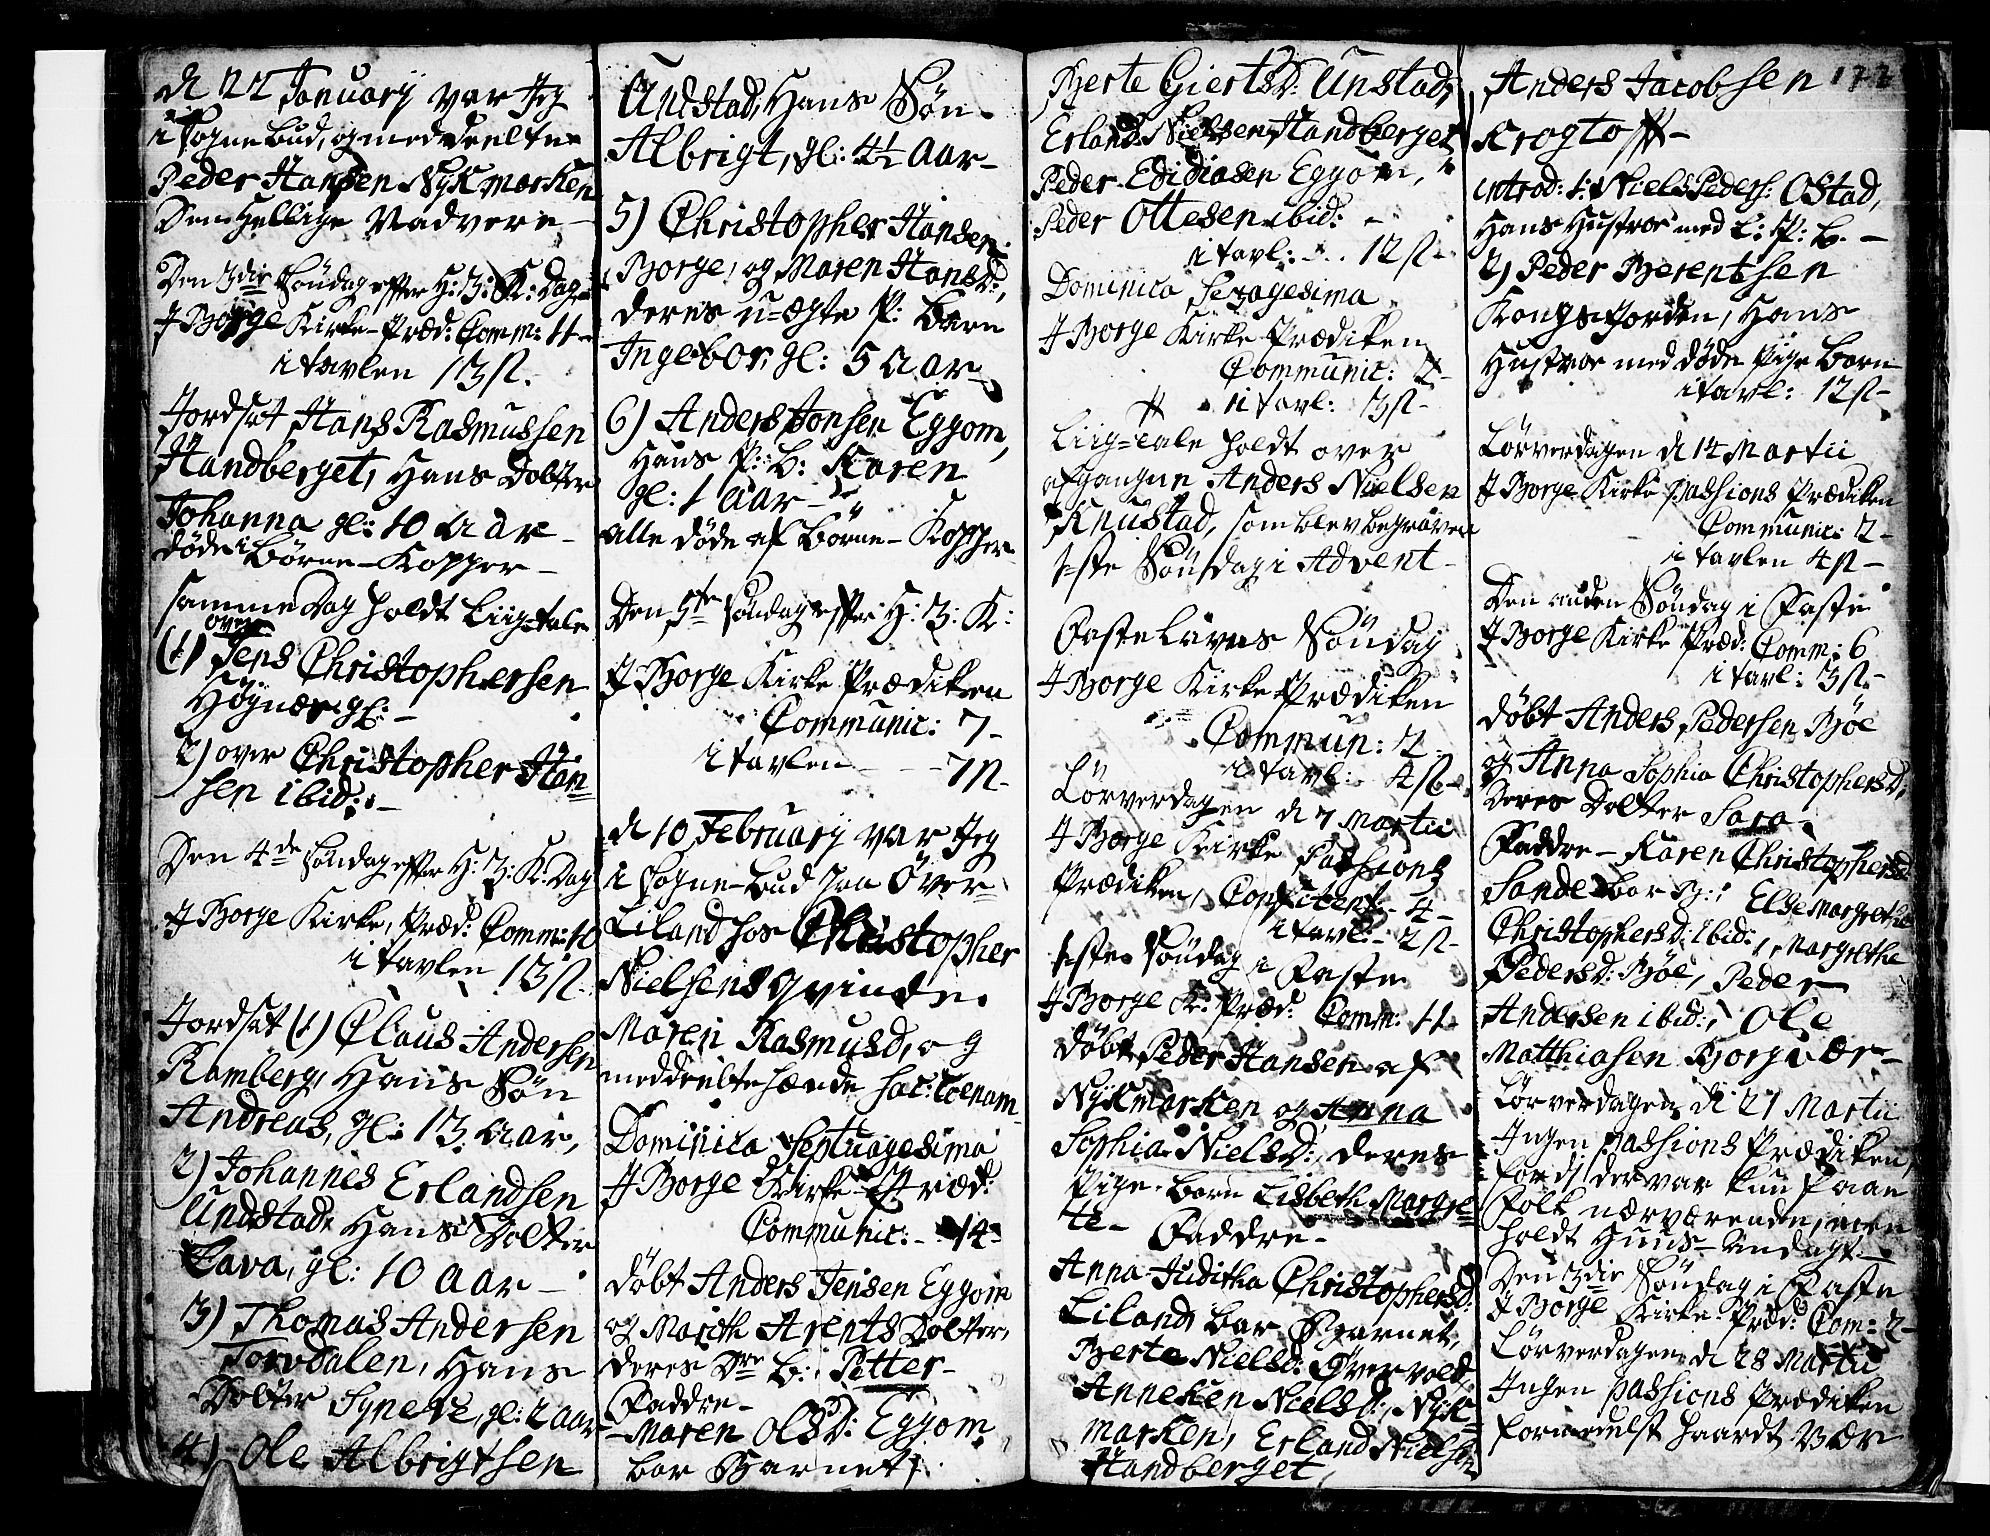 d 22 January var Jeg
i Sognebud, og meddeelte
Peder Hansen Nykmarken
Den Hellige Nadvere
Den 3die Søndag efter H: 3: K: Dag
J Borge Kirke Præd: Comm: 11
i tavlen 13 s.
Jordsat Hans Rasmussen
Handberget, Hans Dotter
Johanna gl: 10 Aar
døde i Børne-Kopper
samme Dag holdt Liig-tale
over
(1) Jens Christophersen
Høynæs gl:
2) over Christopher Han=
sen ibid:
Den 4de Søndag efter H: 3: K: Dag
J Borge Kirke, Præd: Comm: 10
i tavlen 13 s
Jordsat (1) Claus Andersen
Ramberg, Hans Søn
Andreas, gl: 13 Aar,
2) Johannes Erlandsen
Undstad, Hans Dotter
Lava, gl: 10 aar
3) Thomas Andersen
Torvdalen, Hans
Dotter Synete, gl: 2 aar
4) Ole Albrigtsen
Undstad, Hans Søn
Albrigt, gl: 4½ Aar
5) Christopher Hansen
Borge, og Maren Hansd:,
deres u=ægte P: Barn
Ingebor, gl: 5 Aar
6) Anders Jonsen Eggom,
Hans P: b: Karen
gl: 1 aar
alle døde af Børne-Kopper
Den 5te Søndag efter H: 3: K:
J Borge Kirke Prædiken
Communic: 7
i tavlen 7 s
d 10 February var Jeg
i Sogne-bud paa Över
Liland hos Christopher
Nielsens qvinde
Maren Rasmusd, og
meddeelte hænde sac: coenam
Dominica Septuagesima
J Borge Kirke Præd:
Communic: 14
døbt Anders Jensen Eggom
og Mareth Arents Dotter,
deres Dre b: Petter
Faddre
Maren Olsd: Eggom
bar Barnet,
Berte Giertsd: Unstad,
Erland Nielsen Handberget
Peder Edidiasen Eggom,
Peder Ottesen ibid:
i tavl: 12 s
Dominica Sexagesima
J Borge Kirke Prædiken
Communic: 2
i tavl: 3 s
Liig=tale holdt over
afgangne Anders Nielsen
Knustad, som blev begraven
1ste Søndag i Advent
Fastelavns Søndag
J Borge Kirke Prædiken
Commun: 2
i tavl: 4 s
Löverdagen d 7 Martii
J Borge Kirke Passions
Prædiken, Confitent: 4
i tavl: 2 s
1ste Søndag i Faste
J Borge K: Præd: Comm: 11
døbt Peder Hansen af
Nykmarken og Anna
Sophia Nielsd:, deres
Pige-barn Lisbeth Margre=
te Faddre
Anna Juditha Christophersd:
Liland bar Barnet,
Berte Nielsd: Övervold
Anneken Nielsd: Nyk=
marken, Erland Nielsen
Handberget,
Anders Jacobsen 172
Krogtoft
introd: 1: Niels Peders: Ostad,
Hans Hustroe med L: P: b.
2) Peder Berentsen
Kongsjorden, Hans
Hustroe med døde Pige barn
i tavl: 12 s
Löverdagen d 14 Martii
J Borge Kirke Passions Prædiken
Communic: 2
i tavlen 4 s
Den anden Søndag i Faste
J Borge Kirke Præd: Comm: 6
i tavl: 3 s
døbt Anders Pedersen Bøe
og Anna Sophia Christophersd,
Deres Dotter Sara
Faddre Karen Christophersd
Sande bar B:, Else Margrethe
Christophersd: ibid:, Margrethe
Pedersd: Bøe, Peder
Andersen ibid:, Ole
Matthiasen Borgvær
Löverdagen d 21 Martii
Ingen passions Prædiken,
fordi der var kun faae
Folk nærværende, men
holdt Huus-Andagt
Den 3die Søndag i Faste
J Borge Kirke Præd: Com: 2
Löverdagen d 28 Martii
Ingen passions Prædiken
formedelst haardt Vær